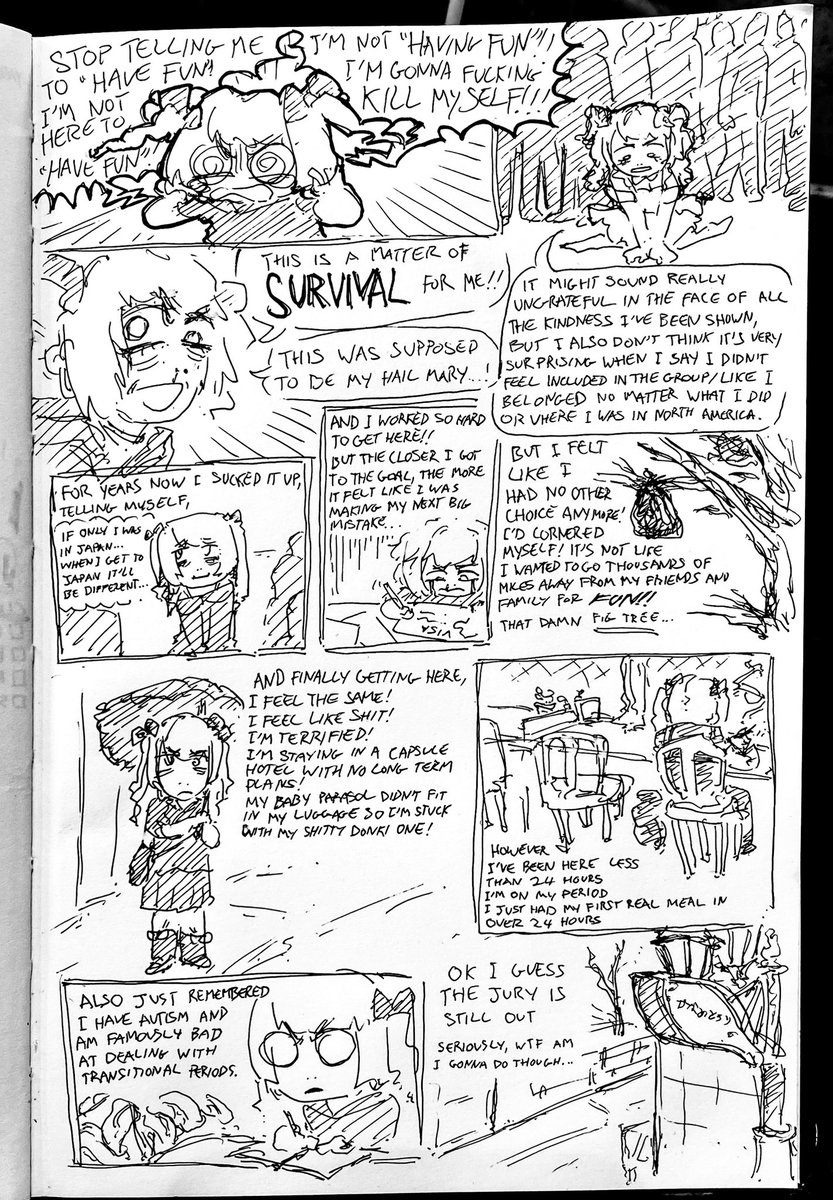 STOP TELLING ME
TO "HAVE FUN"!
I'M NOT
HERE TO
"HAVE FUN"
I'M NOT "HAVING FUN"!!
I'M GONNA FUCKING
KILL MYSELF!!!
THIS IS A MATTER OF
SURVIVAL FOR ME!!
THIS WAS SUPPOSED
TO BE MY HAIL MARY...!
IT MIGHT SOUND REALLY
UNGRATEFUL IN THE FACE OF ALL
THE KINDNESS I'VE BEEN SHOWN,
BUT I ALSO DON'T THINK IT'S VERY
SURPRISING WHEN I SAY I DIDN'T
FEEL INCLUDED IN THE GROUP/LIKE I
BELONGED NO MATTER WHAT I DID
OR WHERE I WAS IN NORTH AMERICA.
FOR YEARS NOW I SUCKED IT UP,
TELLING MYSELF,
IF ONLY I WAS
IN JAPAN...
WHEN I GET TO
JAPAN IT'LL
BE DIFFERENT...
AND I WORKED SO HARD
TO GET HERE!!
BUT THE CLOSER I GOT
TO THE GOAL, THE MORE
IT FELT LIKE I WAS
MAKING MY NEXT BIG
MISTAKE...
VISA
BUT I FELT
LIKE I
HAD NO OTHER
CHOICE ANYMORE!
I'D CORNERED
MYSELF! IT'S NOT LIKE
I WANTED TO GO THOUSANDS OF
MILES AWAY FROM MY FRIENDS AND
FAMILY FOR FUN!!
THAT DAMN FIG TREE...
AND FINALLY GETTING HERE,
I FEEL THE SAME!
I FEEL LIKE SHIT!
I'M TERRIFIED!
I'M STAYING IN A CAPSULE
HOTEL WITH NO LONG TERM
PLANS!
MY BABY PARASOL DIDN'T FIT
IN MY LUGGAGE SO I'M STUCK
WITH MY SHITTY DONKI ONE!
HOWEVER
I'VE BEEN HERE LESS
THAN 24 HOURS
I'M ON MY PERIOD
I JUST HAD MY FIRST REAL MEAL IN
OVER 24 HOURS
ALSO JUST REMEMBERED
I HAVE AUTISM AND
AM FAMOUSLY BAD
AT DEALING WITH
TRANSITIONAL PERIODS.
OK I GUESS
THE JURY IS
STILL OUT
SERIOUSLY, WTF AM
I GONNA DO THOUGH...